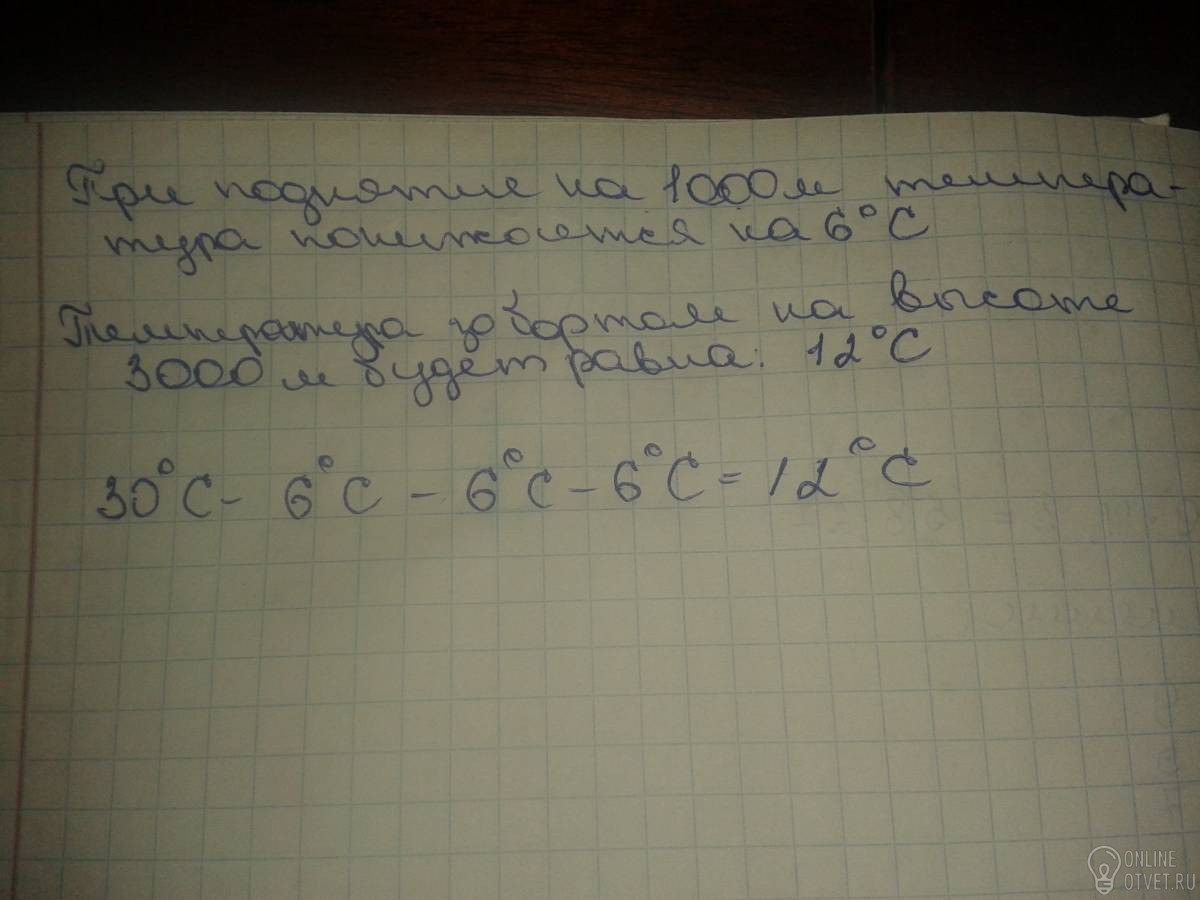 При поднятие на 1000 м темпера-
тура понижается на 6°C
Температура за бортом на высоте
3000 м будет равна: 12°C
30°C - 6°C - 6°C - 6°C = 12°C
ONLINE
OTVET.RU